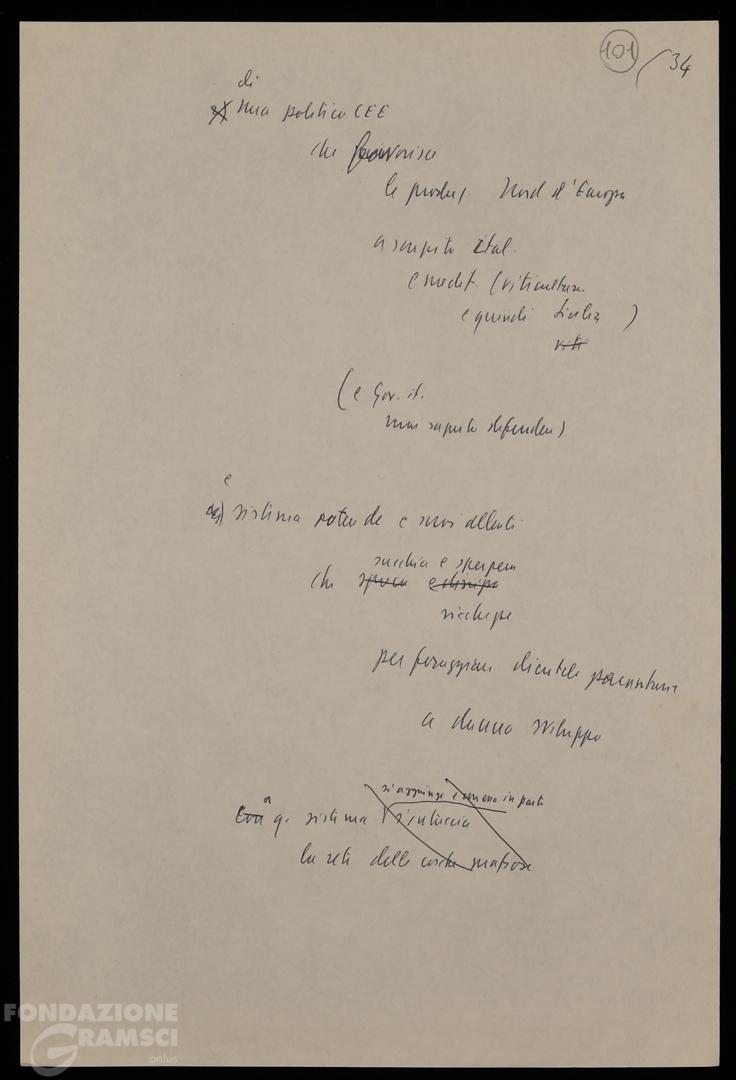 101 / 34
di
una politica CEE
che favorisce
le produz. Nord d'Europa
a scapito ital.
e medit. (viticultura
e quindi Sicilia)
viti
(e Gov. it.
mai saputo difendere)
e
sistema potere dc e suoi alleati
succhia e sperpera
che
ricchezze
per foraggiare clientele parassitarie
a danno sviluppo
si aggiunge e almeno in parte
a
Con q. sistema s'intreccia
la rete delle cosche mafiose
FONDAZIONE
GRAMSCI
onlus